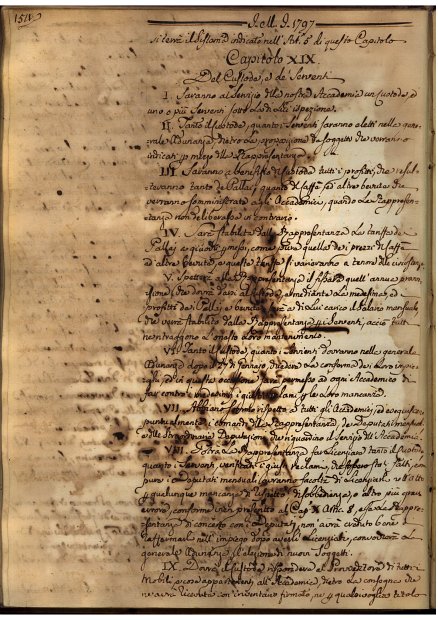 1797
si terrà il sistema indicato nell'Art. 6 di questo Capitolo
Capitolo XIX.
Del Custode, e de' Serventi
I. Saranno al servizio della nostra Accademia un Custode, e
uno o più Serventi sotto la di lui ispezione.
II. Tanto il Custode, quanto i Serventi saranno eletti nella gene-
rale Adunanza, dietro la proposizione de' soggetti che verranno
indicati per mezzo della Rappresentanza.
III. Saranno a benefizio del Custode tutti i profitti, che risul-
teranno tanto da' Pallaj, quanto dal Caffè ed altre bevite che
verranno somministrate agli Accademici, quando la Rappresen-
tanza non deliberasse in contrario.
IV. Sarà stabilita dalla Rappresentanza la tariffa de'
Pallaj e giuochi permessi, come pure quella dei prezzi del Caffè
ed altre bevite, e queste tariffe si varieranno a tenor delle circostanze.
V. Spetterà alla Rappresentanza il fissare quell'annua provvi-
sione, che dovrà darsi al Custode, e mediante la medesima, ed i
profitti dei Pallaj e bevite sarà a di lui carico il salario mensuale
che verrà stabilito dalla Rappresentanza ai Serventi, acciò tutti
ne ritraggano l'onesto loro mantenimento.
VI. Tanto il Custode, quanto i Serventi dovranno nella generale
Adunanza dopo il dì di Gennajo chiedere la conferma dei loro impie-
ghi, ed in questa occasione sarà permesso ad ogni Accademico di
far contro i medesimi i giusti reclami per le loro mancanze.
VII. Abbiano sommo rispetto a tutti gli Accademici, ed eseguiscano
puntualmente i comandi della Rappresentanza, de' Deputati mensuali
e delle straordinarie Deputazioni che riguardino il servizio dell'Accademia.
VIII. Potrà la Rappresentanza far licenziare tanto il Custode,
quanto i Serventi
pure i Deputati mensuali avranno facoltà di licenziarli
per qualunque mancanza di rispetto, di obbedienza, o altro più grave
errore, conforme vien prescritto al Cap. X Artic. 8, e se la Rappre-
sentanza di concerto coi Deputati non avrà creduto bene di
riammetterli nell'impiego dopo averli licenziati, convocherà la
generale Adunanza per l'elezione di nuovi Soggetti.
IX. Dovrà il Custode rispondere al Provveditore di tutti i
Mobili, ec. ec. appartenenti all'Accademia, dietro la consegna che
ne avrà ricevuta con Inventario firmato, nè per qualsivoglia titolo